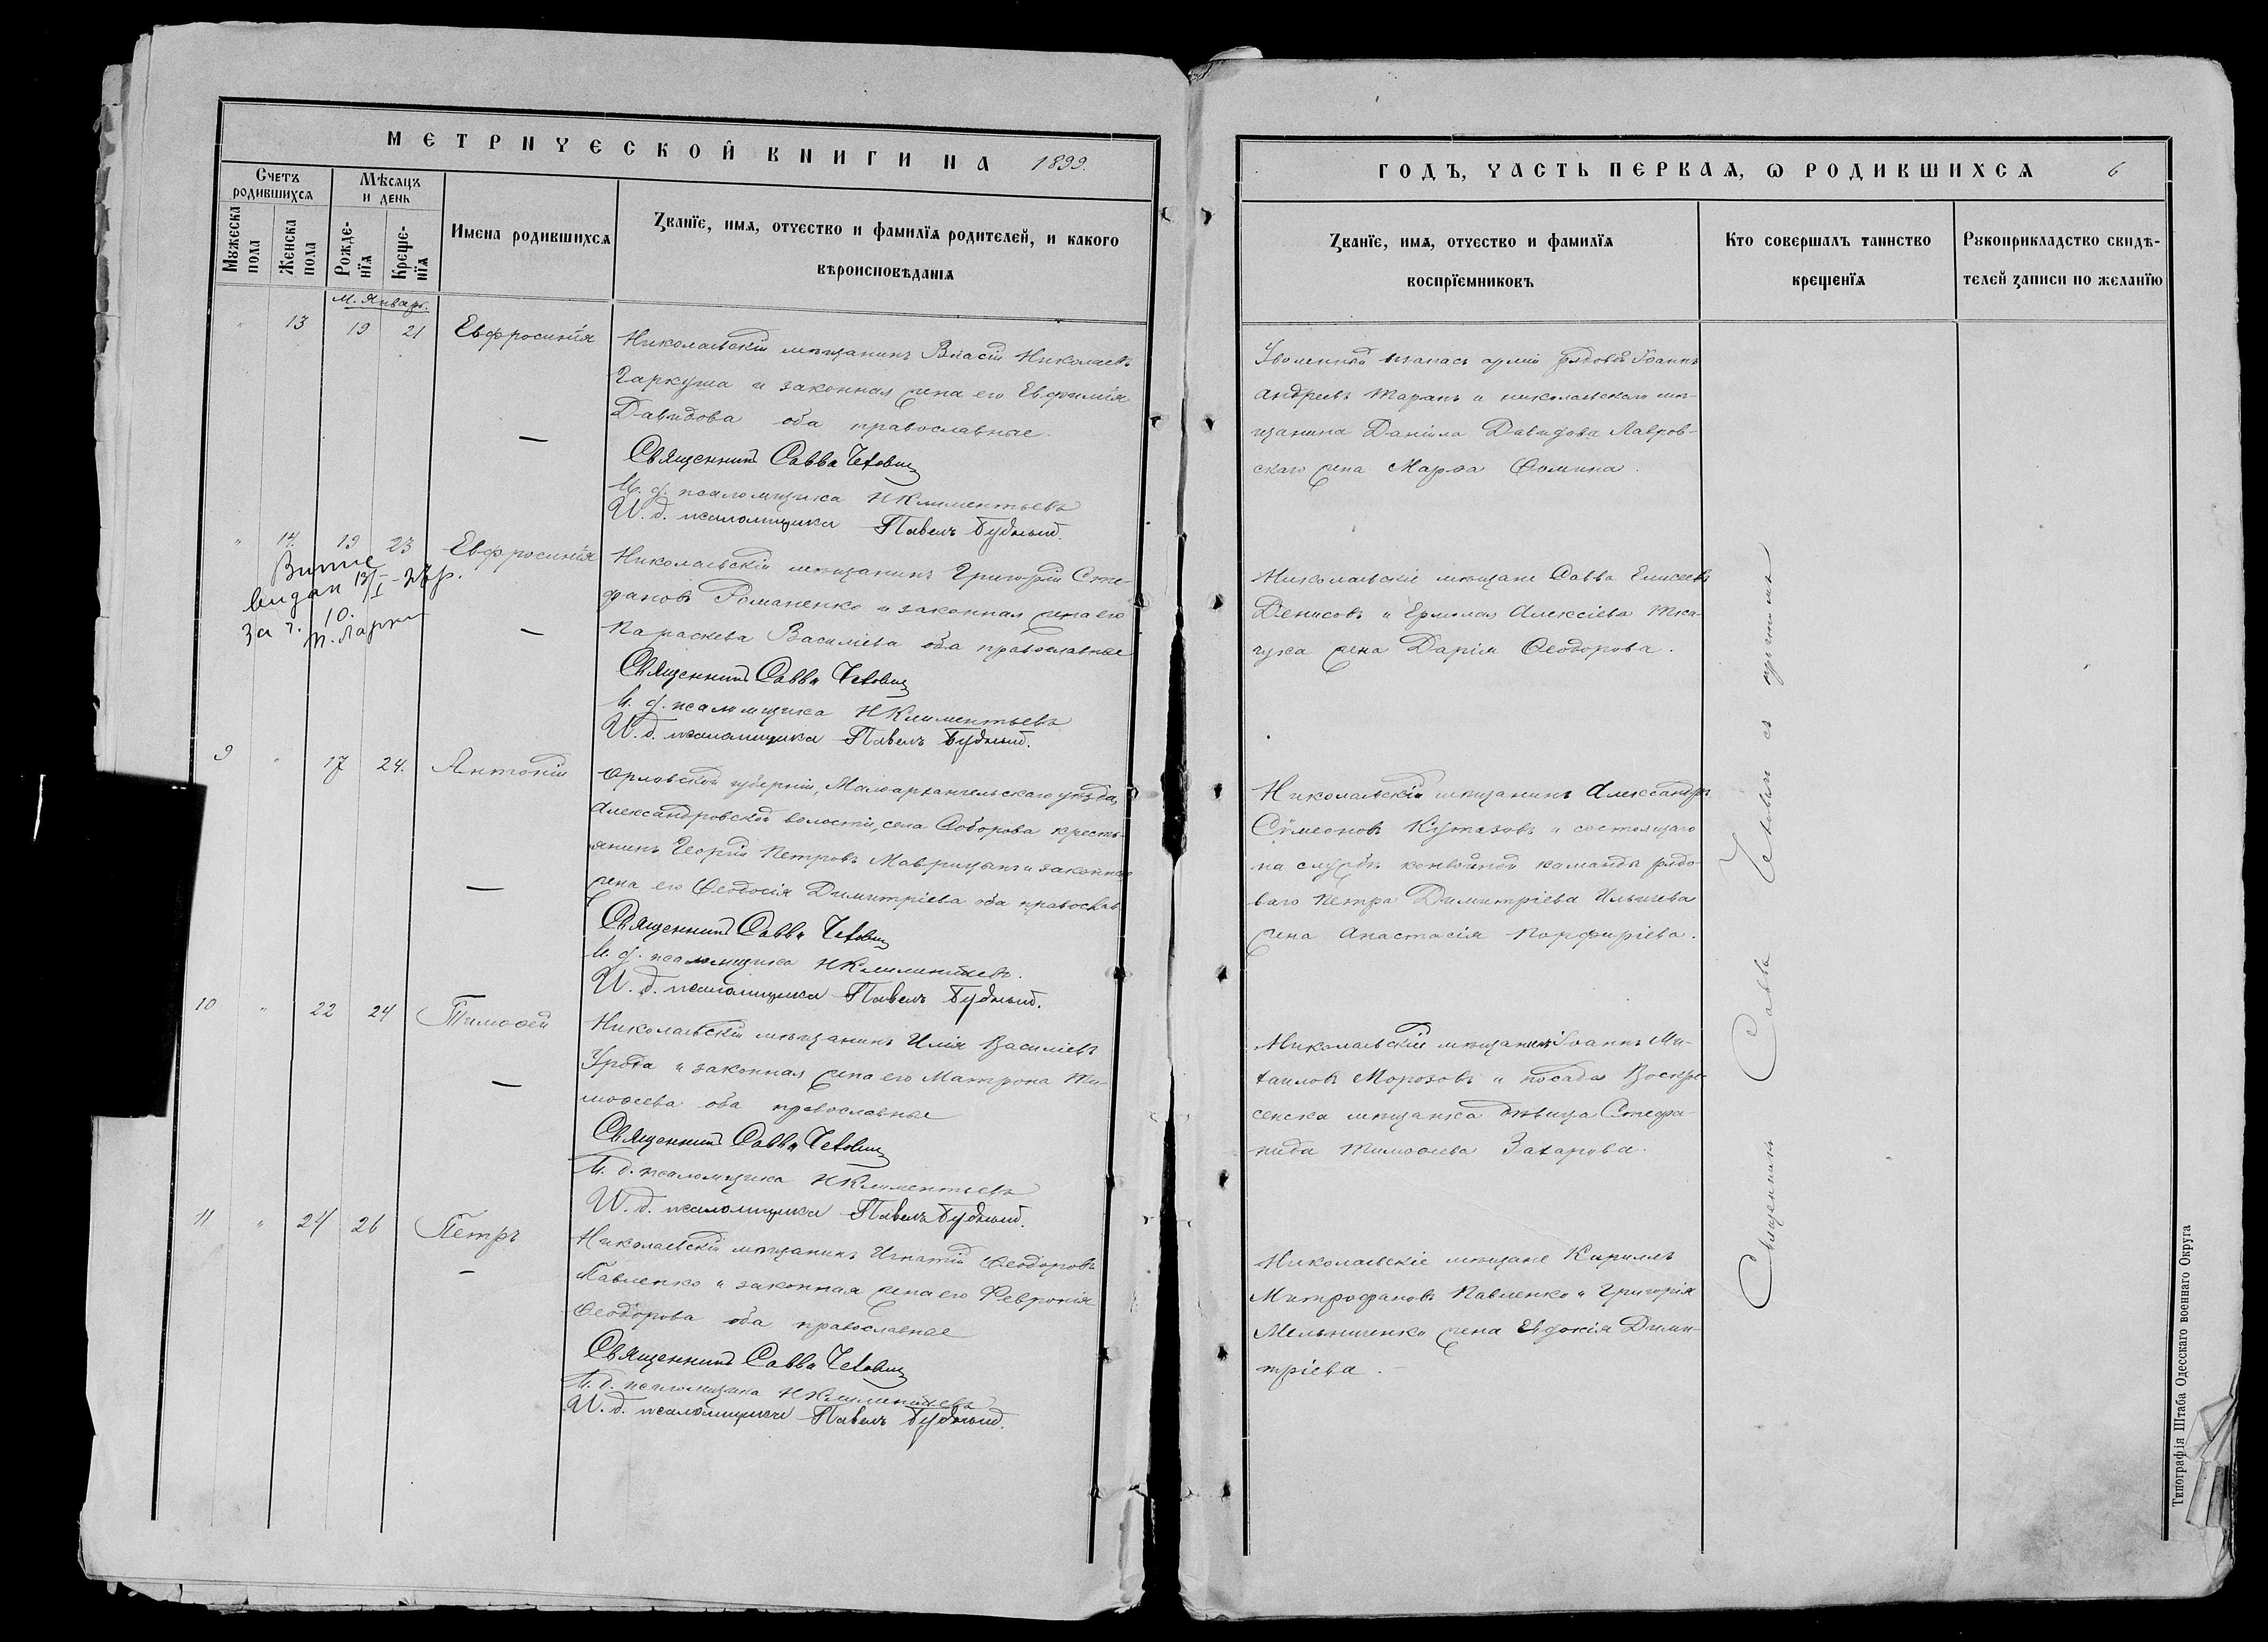 МЕТРИЧЕСКОЙ КНИГИ НА 1899.
Счетъ родившихся
Мѣсяцъ и день
Имена родившихся
Званїе, имя, отчество и фамилїя родителей, и какого
вѣроисповѣданія
Мужеска пола
Женска пола
Рожде-
нїя
Креще-
нїя
м. Январь.
" 13 19 21 Евфросинія
Николаевскій мѣщанинъ Власій Николаевъ
Гаркуша и законная жена его Евфимія
Давидова оба православные.
Священникъ Савва
И. д. псаломщика Н Климентьевъ
И. д. псаломщика Павелъ Будный.
" 14. 19 23 Евфросинія
видан
За ч. 10.
Николаевскій мѣщанинъ Григорій Сте-
фановъ Романенко и законная жена его
Параскева Василіева оба православные
Священникъ Савва
И. д. псаломщика Н Климентьевъ
И. д. псаломщика Павелъ Будный.
9 " 17 24. Антоній
Орловской губерніи, Малоархангельскаго уѣзда,
Александровской волости, села кресть-
янинъ Георгій Петровъ и законная
жена его Ѳеодосія Димитріева оба православ
Священникъ Савва
И. д. псаломщика Н Климентьевъ.
И. д. псаломщика Павелъ Будный.
10 " 22 24 Тимоѳей
Николаевскій мѣщанинъ Илія Василіевъ
Урода и законная жена его Матрона Ти-
моѳеева оба православные
Священникъ Савва
И. д. псаломщика Н Климентьевъ
И. д. псаломщика Павелъ Будный.
11 " 24 26 Петръ
Николаевскій мѣщанинъ Игнатій Ѳеодоровъ
Павленко и законная жена его Февронія
Ѳеодорова оба православные
Священникъ Савва
И. д. псаломщика Н Климентьевъ
И. д. псаломщика Павелъ Будный.
ГОДЪ, ЧАСТЬ ПЕРВАЯ, Ѡ РОДИВШИХСЯ 6
Званїе, имя, отчество и фамилїя
воспрїемниковъ
Кто совершалъ таинство
крещенїя
Рукоприкладство свидѣ-
телей записи по желанїю
Уволенный въ запасъ арміи рядовой Іоаннъ
Андреевъ Таранъ и николаевскаго мѣ-
щанина Даніила Давидова Лавров-
скаго жена Марѳа Ѳомина.
Николаевскіе мѣщане Савва Елисеевъ
Денисовъ и Ермолая Алексіева Тка-
чука жена Дарія Ѳеодорова.
Николаевскій мѣщанинъ Александръ
Сѵмеоновъ Кутазовъ и состоящаго
на службѣ конвойной команды рядо-
ваго Петра Димитріева Ильичева
жена Анастасія Порфиріева.
Николаевскій мѣщанинъ Іоаннъ Ми-
хаиловъ Морозовъ и посада Воскре-
сенска мѣщанка дѣвица Стефа-
нида Тимоѳеева Захарова.
Николаевскіе мѣщане Кириллъ
Митрофановъ Павленко и Григорія
Мельниченко жена Евдокія Дими-
тріева.
Священникъ Савва
Типографія Штаба Одесскаго военнаго Округа